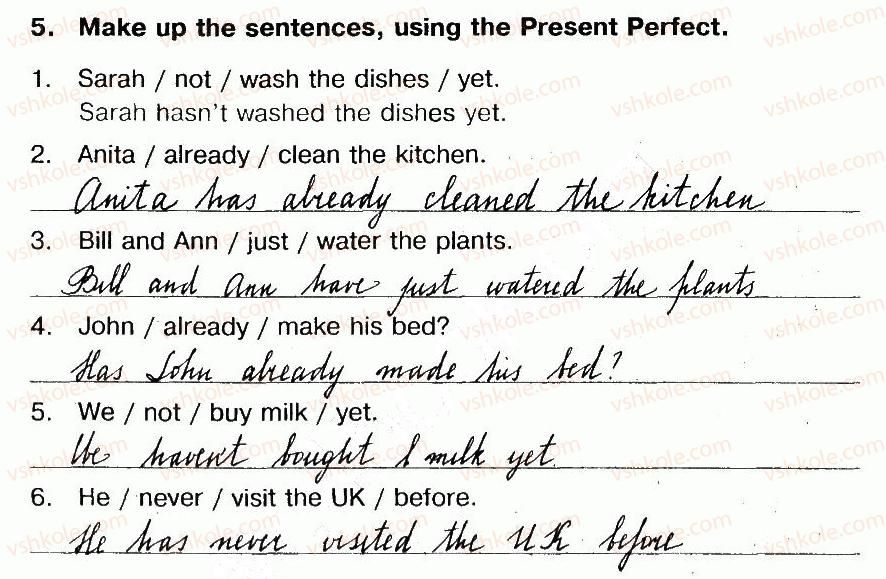 5. Make up the sentences, using the Present Perfect.
1. Sarah / not / wash the dishes / yet.
Sarah hasn't washed the dishes yet.
2. Anita / already / clean the kitchen.
Anita has already cleaned the kitchen
3. Bill and Ann / just / water the plants.
Bill and Ann have just watered the plants
4. John / already / make his bed?
Has John already made his bed?
5. We / not / buy milk / yet.
We haven't bought milk yet.
6. He / never / visit the UK / before.
He has never visited the UK before